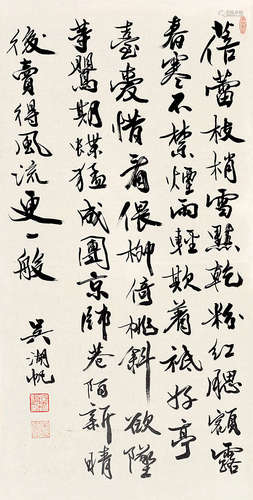 蓓蕾枝梢雪點乾粉紅腮額露
春寒不禁煙雨輕欺着祗好亭
臺愛惜看偎柳倚桃斜欲墜
等鶯期蝶猛成團京師巷陌新晴
後賣得風流更一般
吳湖帆